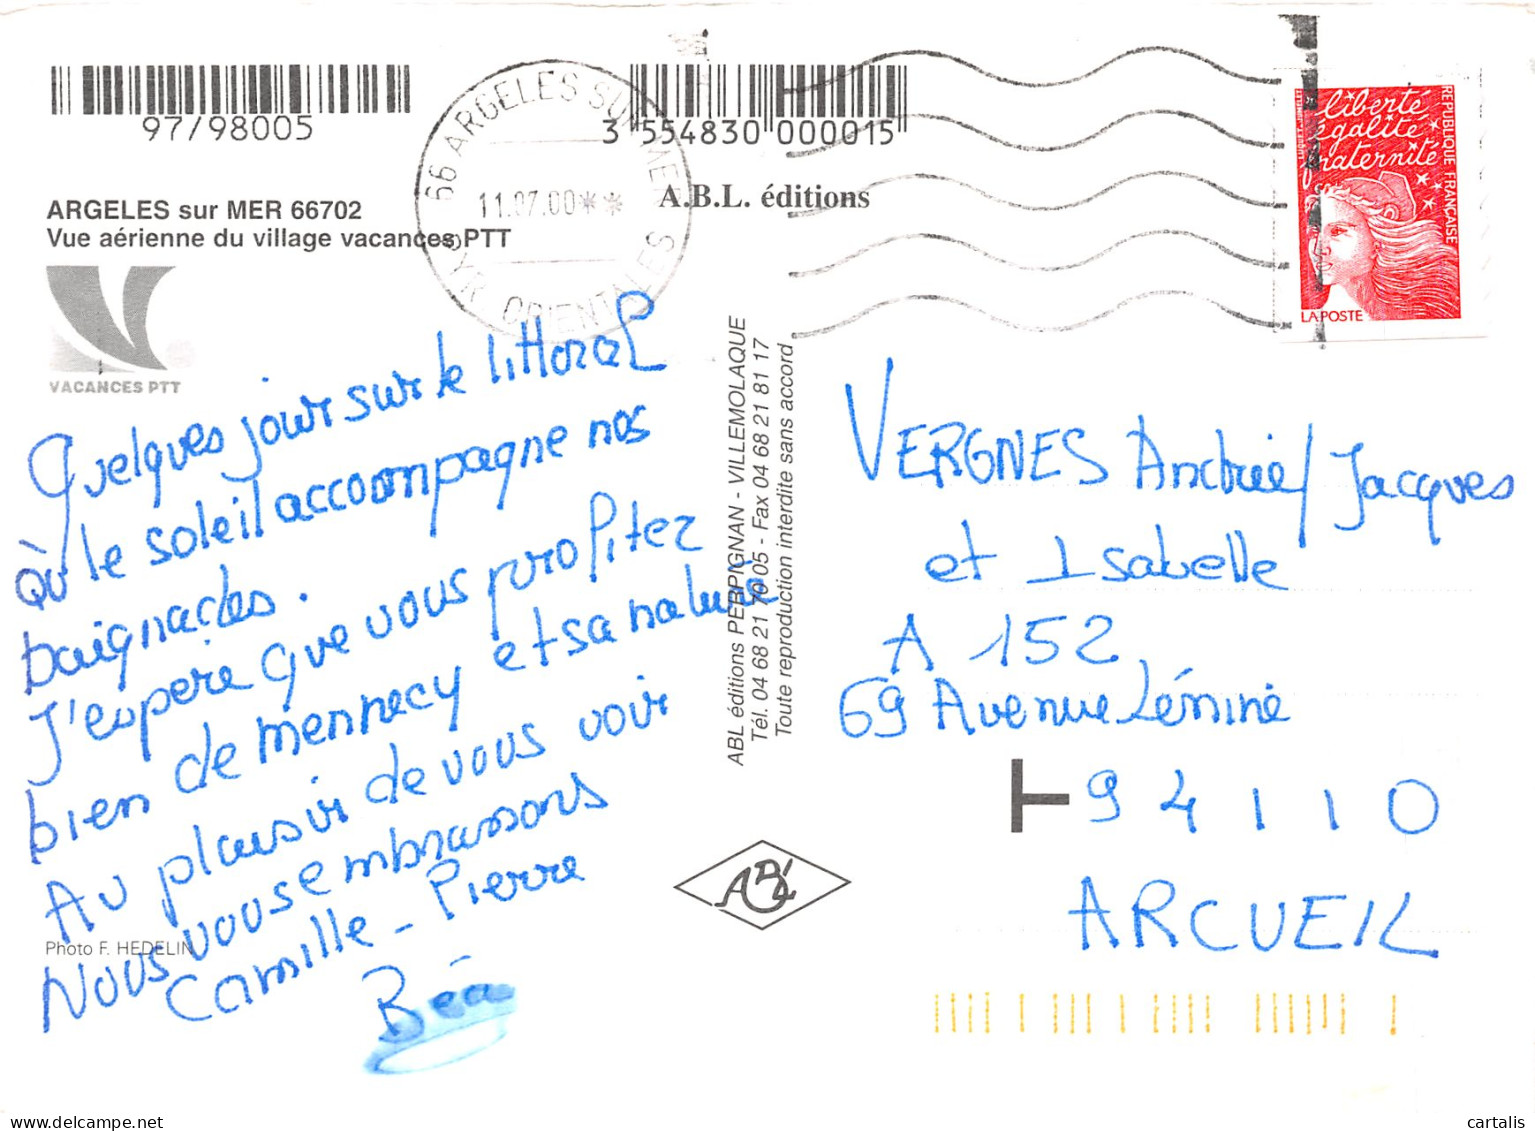 97/98005
3 554830 000015
66 ARGELES SUR MER
11.07.00**
PYR. ORIENTALES
A.B.L. éditions
ARGELES sur MER 66702
Vue aérienne du village vacances PTT
VACANCES PTT
liberté
égalité
fraternité
REPUBLIQUE FRANÇAISE
LA POSTE
Quelques jours sur le littoral
Où le soleil accoompagne nos
baignades.
J'espère que vous profitez
bien de mennecy et sa nature
Au plaisir de vous voir
Nous vous embrassons
Camille - Pierre
Béa
Photo F. HEDELIN
ABL éditions PERPIGNAN - VILLEMOLAQUE
Tél. 04 68 21 70 05 - Fax 04 68 21 81 17
Toute reproduction interdite sans accord
VERGNES Andrée/Jacques
et Isabelle
A 152
69 Avenue Lénine
94110
ARCUEIL
ABL
cartalis